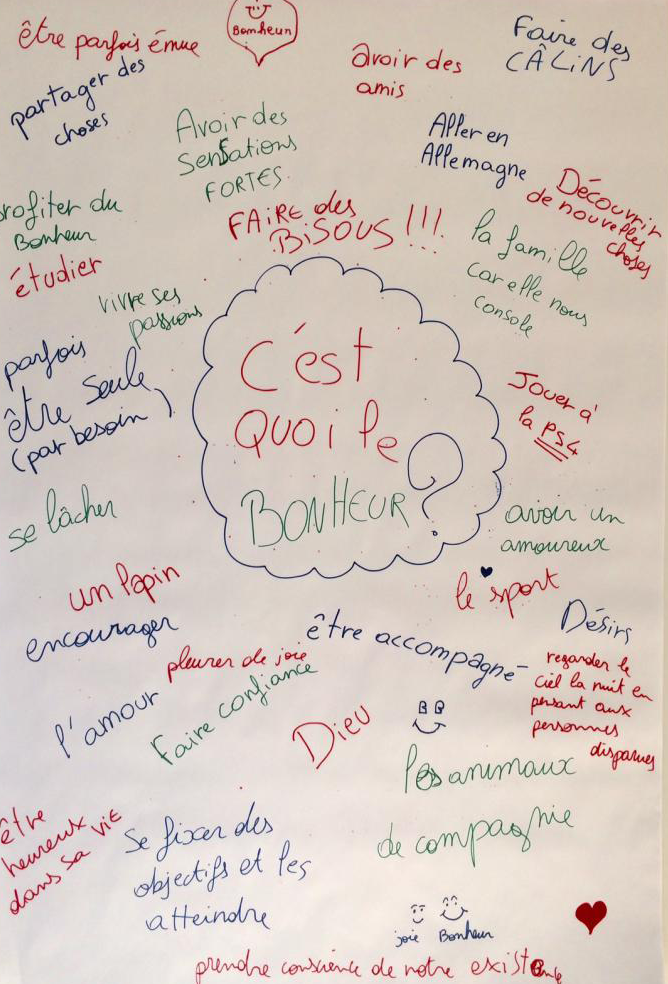 Bonheur
être parfois émue
Faire des
CÂLiNS
avoir des
amis
partager des
choses
Avoir des
Sensations
FORTES.
Aller en
Allemagne
Découvrir
de nouvelles
choses
profiter du
Bonheur
FAiRE des
BiSOUS !!!
la famille
car elle nous
console
étudier
vivre ses
passions
parfois
être seule
(par besoin)
C'est
QUOi le
BONHEUR ?
Jouer à
la PS4
se lâcher
avoir un
amoureux
un lapin
le sport
encourager
être accompagné
Désirs
pleurer de joie
regarder le
ciel la nuit en
pensant aux
personnes
disparues
l'amour
Faire confiance
Dieu
les animaux
de compagnie
être
heureux
dans sa vie
Se fixer des
objectifs et les
atteindre
joie Bonheur
prendre conscience de notre existence